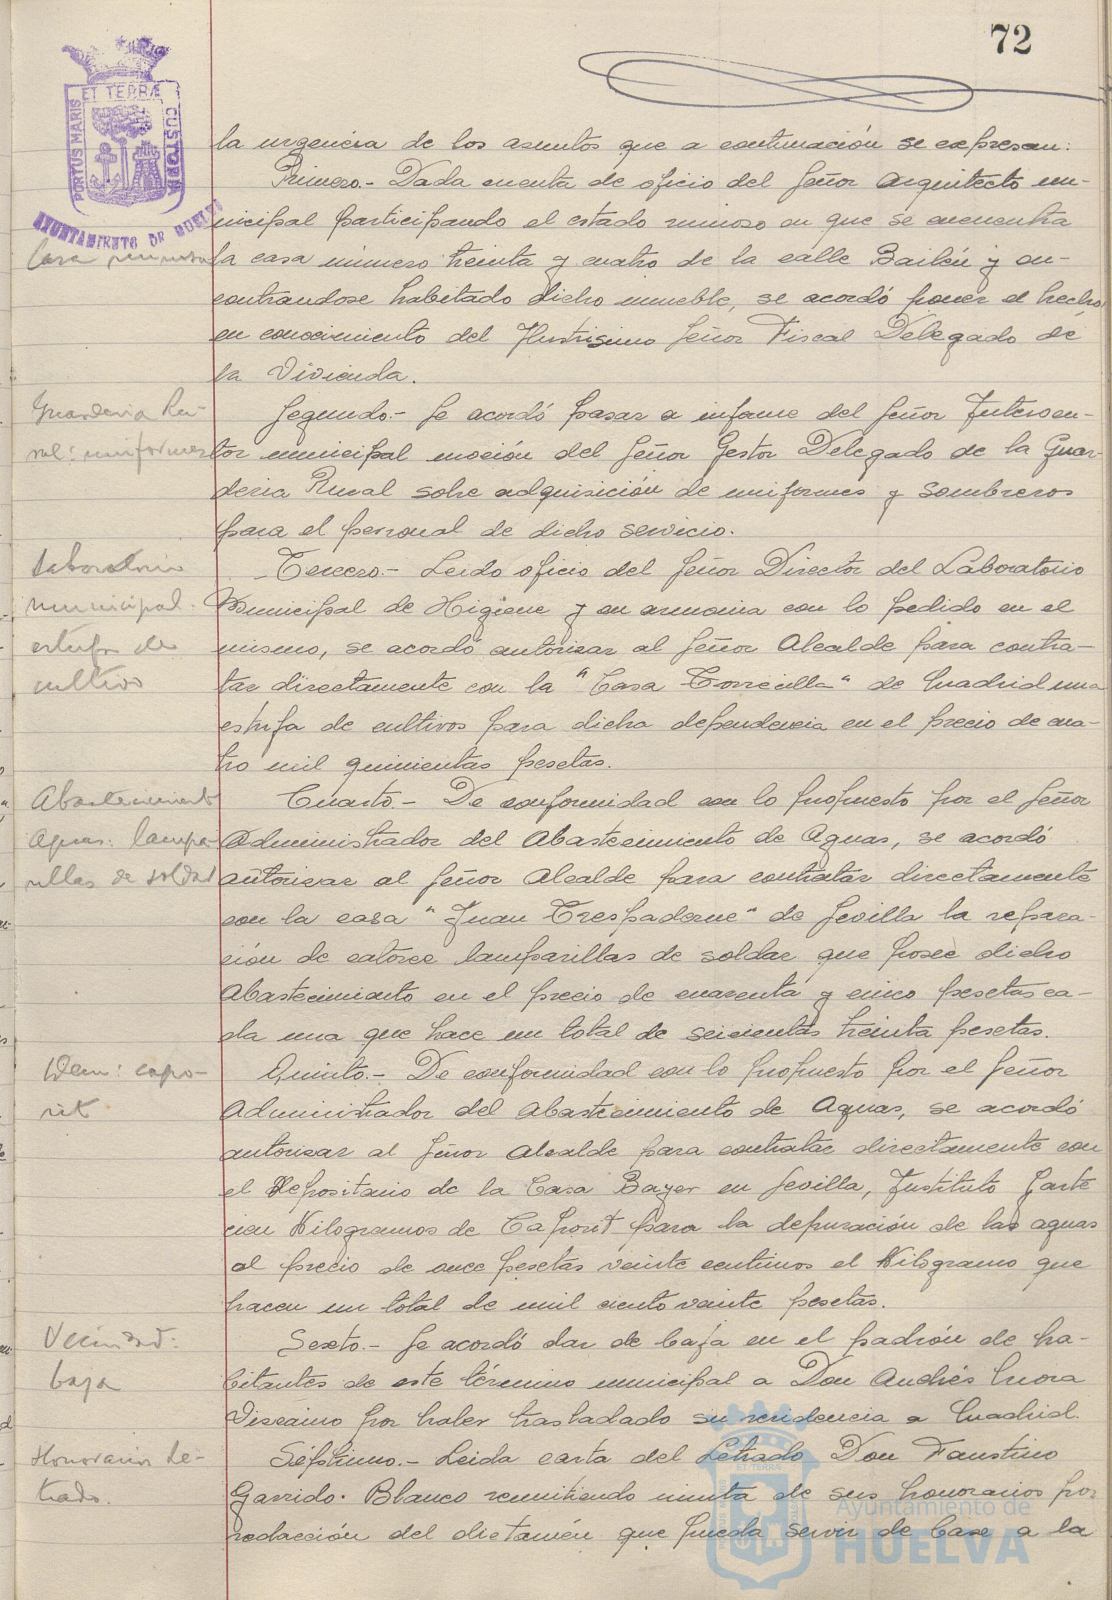 72
PORTUS MARIS ET TERRÆ CUSTODIA
AYUNTAMIENTO DE HUELVA
la urgencia de los asuntos que a continuación se expresan:
Primero.- Dada cuenta de oficio del Señor Arquitecto mu-
nicipal participando el estado ruinoso en que se encuentra
Casa ruinosa
la casa número treinta y cuatro de la calle Bailén y en-
contrandose habitado dicho inmueble, se acordó poner el hecho
en conocimiento del Ilustrisimo Señor Fiscal Delegado de
la Vivienda.
Guarderia Ru-
ral: uniformes
Segundo.- Se acordó pasar a informe del Señor Interven-
tor municipal moción del Señor Gestor Delegado de la Guar-
deria Rural sobre adquisición de uniformes y sombreros
para el personal de dicho servicio.
Laboratorio
municipal.
estufa de
cultivos
Tercero.- Leido oficio del Señor Director del Laboratorio
Municipal de Higiene y en armonia con lo pedido en el
mismo, se acordó autorizar al Señor Alcalde para contra-
tar directamente con la "Casa Torrecilla" de Madrid una
estufa de cultivos para dicha dependencia en el precio de cua-
tro mil quinientas pesetas.
Abastecimiento
Aguas: lampa-
rillas de soldar
Cuarto.- De conformidad con lo propuesto por el Señor
Administrador del Abastecimiento de Aguas, se acordó
autorizar al Señor Alcalde para contratar directamente
con la casa "Juan Trespaderne" de Sevilla la repara-
ción de catorce lamparillas de soldar que posee dicho
Abastecimiento en el precio de cuarenta y cinco pesetas ca-
da una que hace un total de seicientas treinta pesetas.
Idem: capo-
rit
Quinto.- De conformidad con lo propuesto por el Señor
Administrador del Abastecimiento de Aguas, se acordó
autorizar al Señor Alcalde para contratar directamente con
el Depositario de la Casa Bayer en Sevilla, Instituto
cien Kilogramos de Caporit para la depuración de las aguas
al precio de once pesetas veinte centimos el Kilogramo que
hacen un total de mil ciento veinte pesetas.
Vecindad:
baja
Sexto.- Se acordó dar de baja en el padrón de ha-
bitantes de este término municipal a Don Andrés Mora
Viscaino por haber trasladado su residencia a Madrid.
Honorarios Le-
trado.
Séptimo.- Leida carta del Letrado Don Faustino
Garrido Blanco remitiendo minuta de sus honorarios por
redacción del dictamen que pueda servir de base a la
Ayuntamiento de
HUELVA